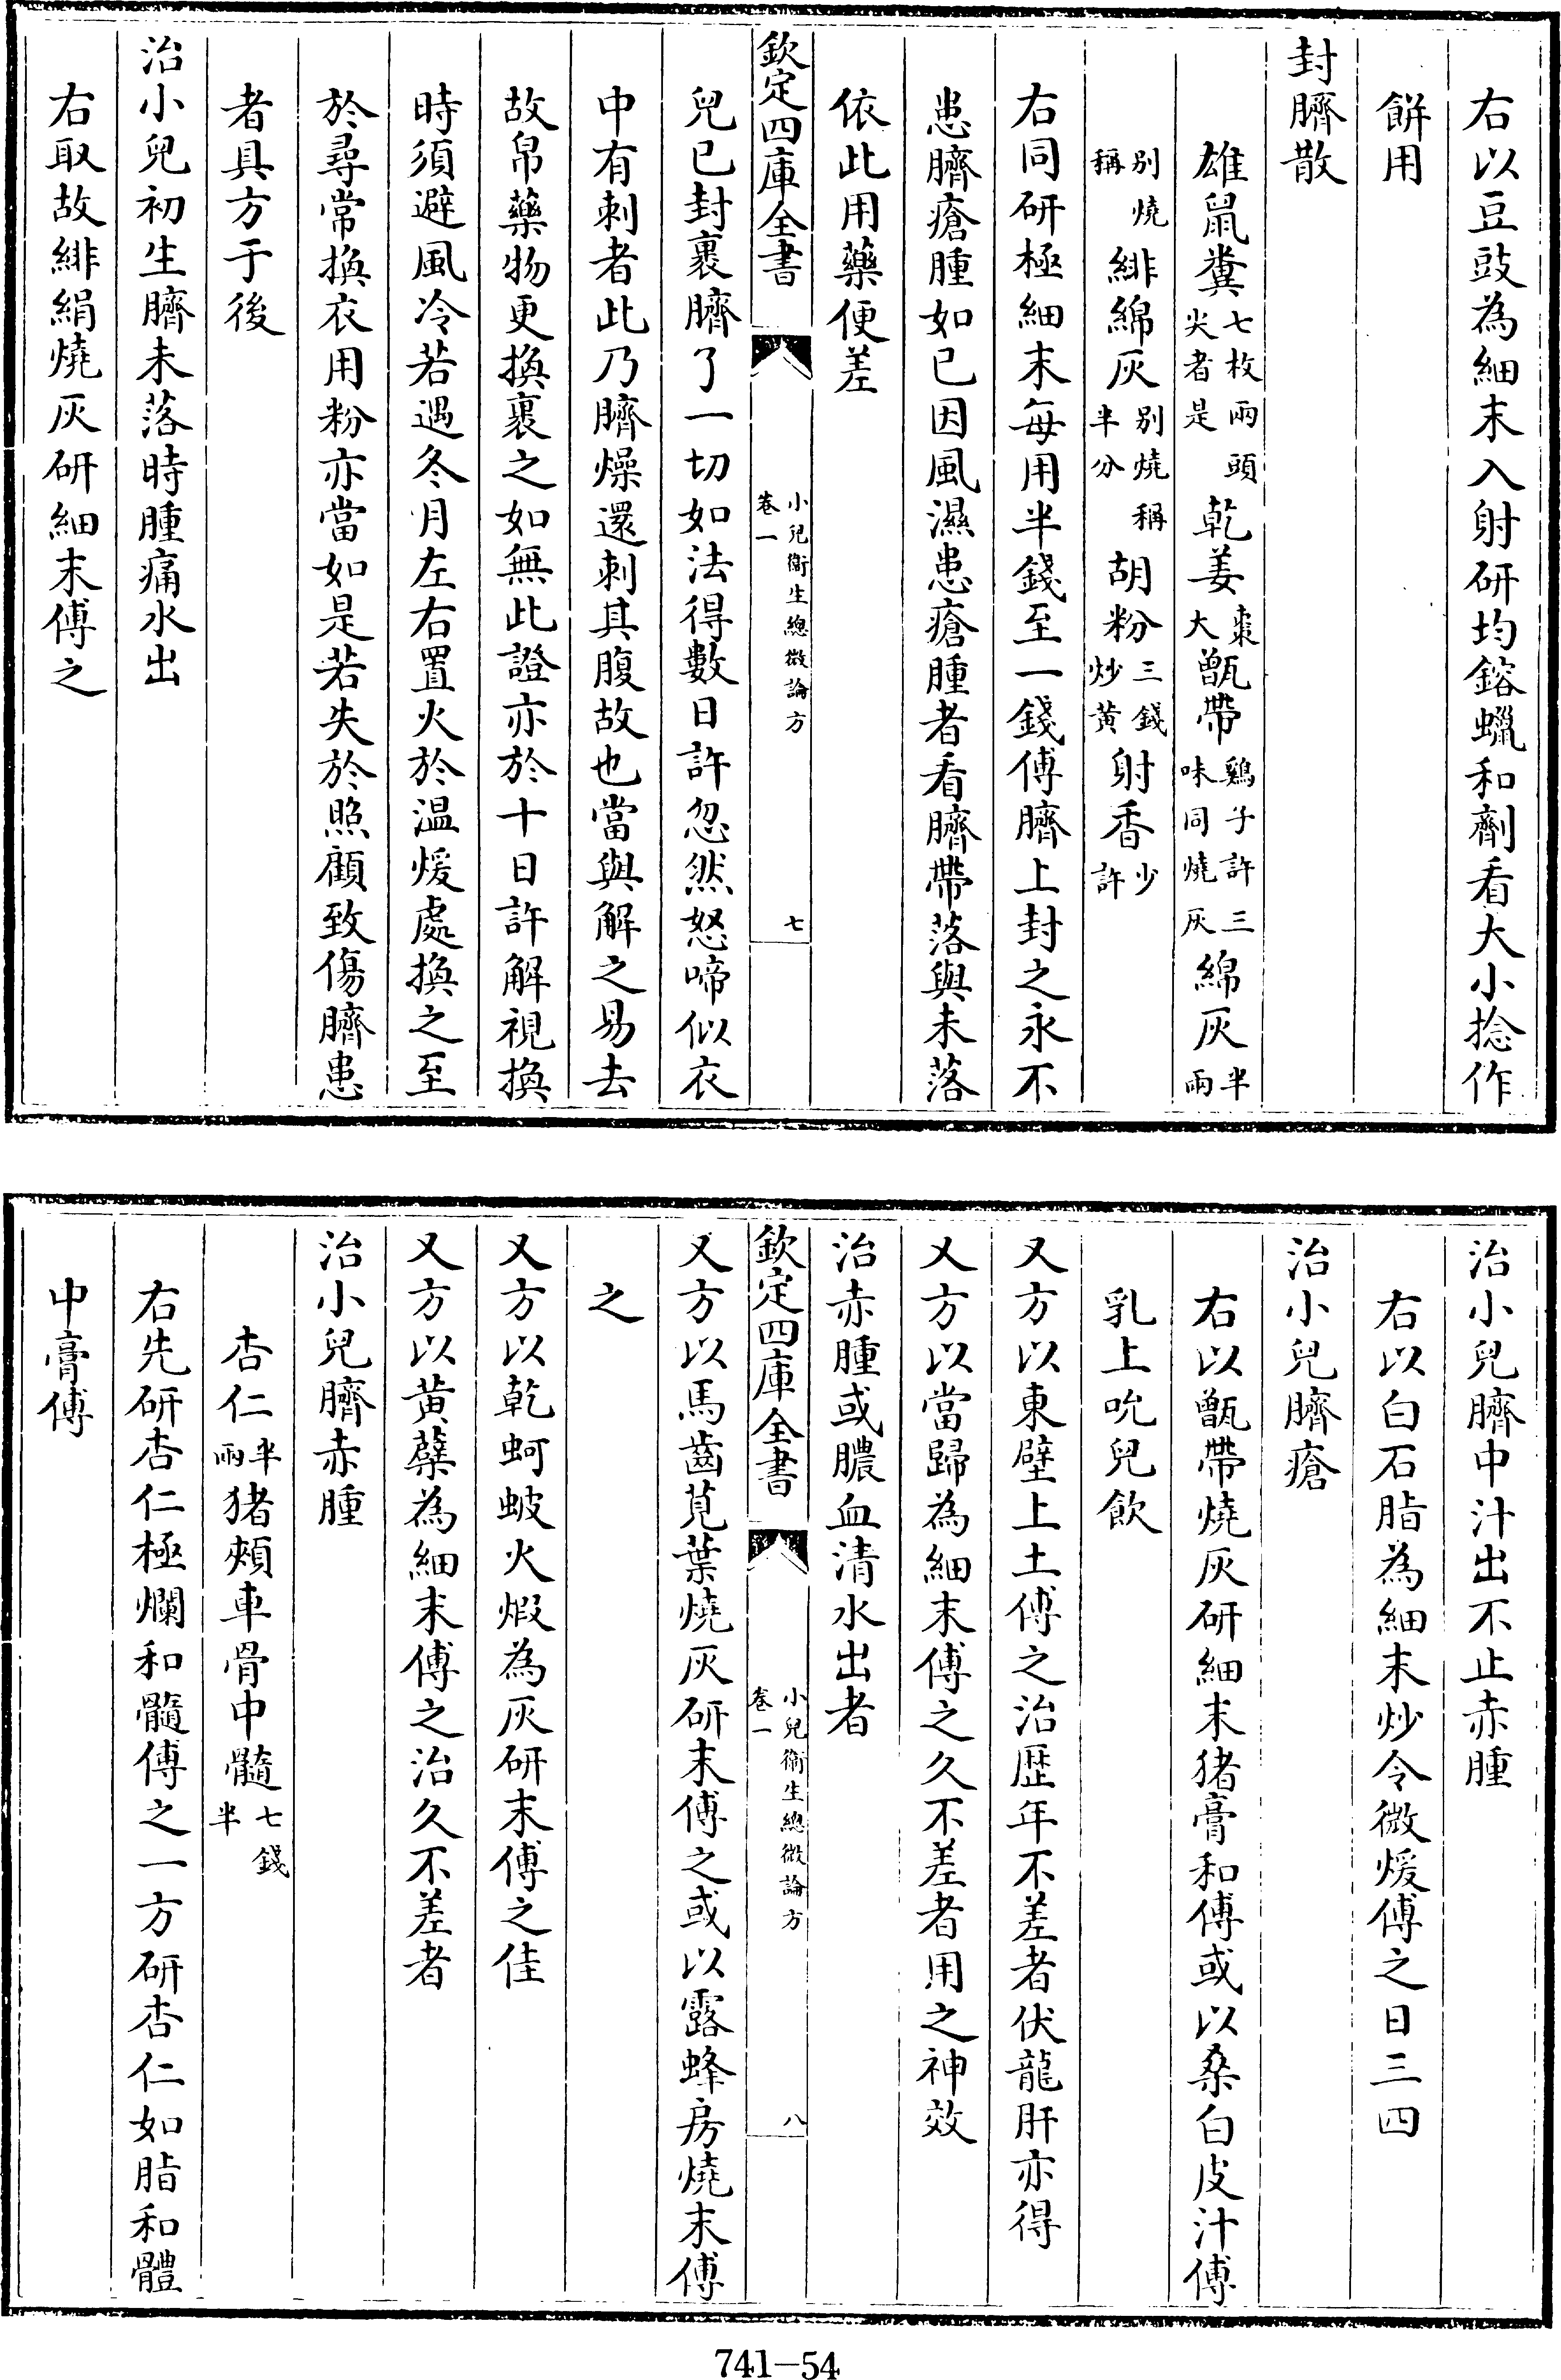 右以豆豉為細末入射研均鎔蠟和劑看大小捻作
餅用
封臍散
雄鼠糞七枚兩頭尖者是乾姜棗大甑帶鷄子許三味同燒灰綿灰半兩
别燒稱緋綿灰别燒稱半分胡粉三錢炒黄射香少許
右同研極細末每用半錢至一錢傅臍上封之永不
患臍瘡腫如已因風濕患瘡腫者看臍帶落與未落
依此用藥便差
欽定四庫全書
小兒衞生總微論方
卷一
七
兒已封裹臍了一切如法得數日許忽然怒啼似衣
中有刺者此乃臍燥還刺其腹故也當與解之易去
故帛藥物更換裹之如無此證亦於十日許解視換
時須避風冷若遇冬月左右置火於温煖處換之至
於尋常換衣用粉亦當如是若失於照顧致傷臍患
者具方于後
治小兒初生臍未落時腫痛水出
右取故緋絹燒灰研細末傅之
治小兒臍中汁出不止赤腫
右以白石脂為細末炒令微煖傅之日三四
治小兒臍瘡
右以甑帶燒灰研細末猪膏和傅或以桑白皮汁傅
乳上吮兒飲
又方以東壁上土傅之治歴年不差者伏龍肝亦得
又方以當歸為細末傅之久不差者用之神效
治赤腫或膿血清水出者
欽定四庫全書
小兒衞生總微論方
卷一
八
又方以馬齒莧葉燒灰研末傅之或以露蜂房燒末傅
之
又方以乾蚵蚾火煅為灰研末傅之佳
又方以黄蘗為細末傅之治久不差者
治小兒臍赤腫
杏仁半兩猪頰車骨中髓七錢半
右先研杏仁極爛和髓傅之一方研杏仁如脂和體
中膏傅
741-54